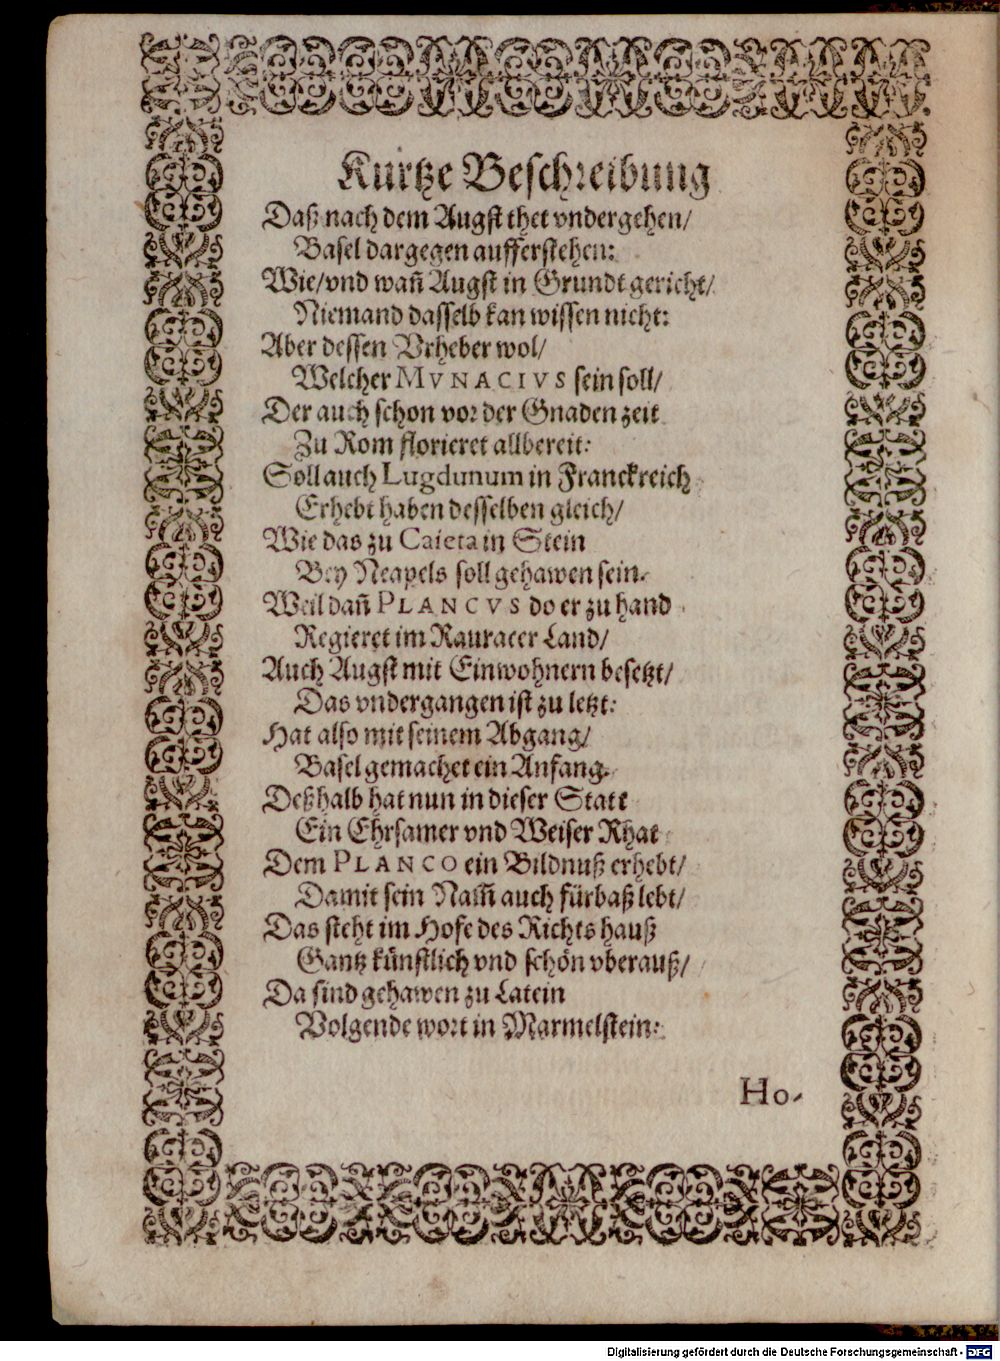 Kurtze Beschreibung
Daß nach dem Augst thet vndergehen/
Basel dargegen aufferstehen:
Wie/vnd wañ Augst in Grundt gericht/
Niemand dasselb kan wissen nicht:
Aber dessen Vrheber wol/
Welcher MVNACIVS sein soll/
Der auch schon vor der Gnaden zeit
Zu Rom florieret allbereit:
Soll auch Lugdunum in Franckreich
Erhebt haben desselben gleich/
Wie das zu Caieta in Stein
Bey Neapels soll gehawen sein.
Weil dañ PLANCVS do er zu hand
Regieret im Rauracer Land/
Auch Augst mit Einwohnern besetzt/
Das vndergangen ist zu letzt:
Hat also mit seinem Abgang/
Basel gemachet ein Anfang.
Deßhalb hat nun in dieser Statt
Ein Ehrsamer vnd Weiser Rhat
Dem PLANCO ein Bildnuß erhebt/
Damit sein Nam̃ auch fürbaß lebt/
Das steht im Hofe des Richts hauß
Gantz künstlich vnd schön vberauß/
Da sind gehawen zu Latein
Volgende wort in Marmelstein:
Ho-
Digitalisierung gefördert durch die Deutsche Forschungsgemeinschaft - DFG